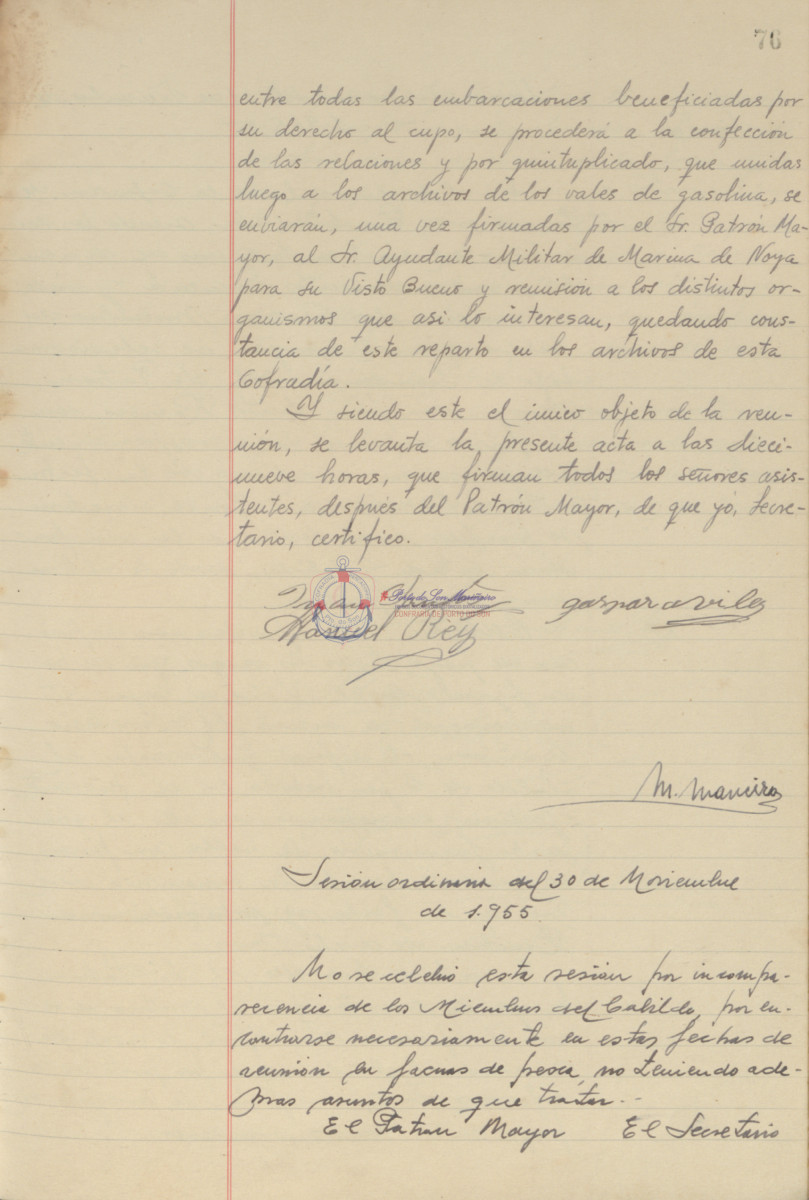 76
entre todas las embarcaciones beneficiadas por
su derecho al cupo, se procederá a la confección
de las relaciones y por quintuplicado, que unidas
luego a los archivos de los vales de gasolina, se
enviarán, una vez firmadas por el Sr. Patrón Ma-
yor, al Sr. Ayudante Militar de Marina de Noya
para su Visto Bueno y remisión a los distintos or-
ganismos que asi lo interesan, quedando cons-
tancia de este reparto en los archivos de esta
Cofradía.
Y siendo este el único objeto de la reu-
nión, se levanta la presente acta a las dieci-
nueve horas, que firman todos los señores asis-
tentes, después del Patrón Mayor, de que yó, Secre-
tario, certifico.
gaspar avila
Manuel Rey
CONFRARÍA DE PORTO DO SON
M. Maneiro
Sesión ordinaria del 30 de Noviembre
de 1.955.
No se celebró esta sesión por incompa-
recencia de los Miembros del Cabildo, por en-
contrarse necesariamente en estas fechas de
reunión en faenas de pesca, no teniendo ade-
mas asuntos de que tratar.-
El Patron Mayor El Secretario